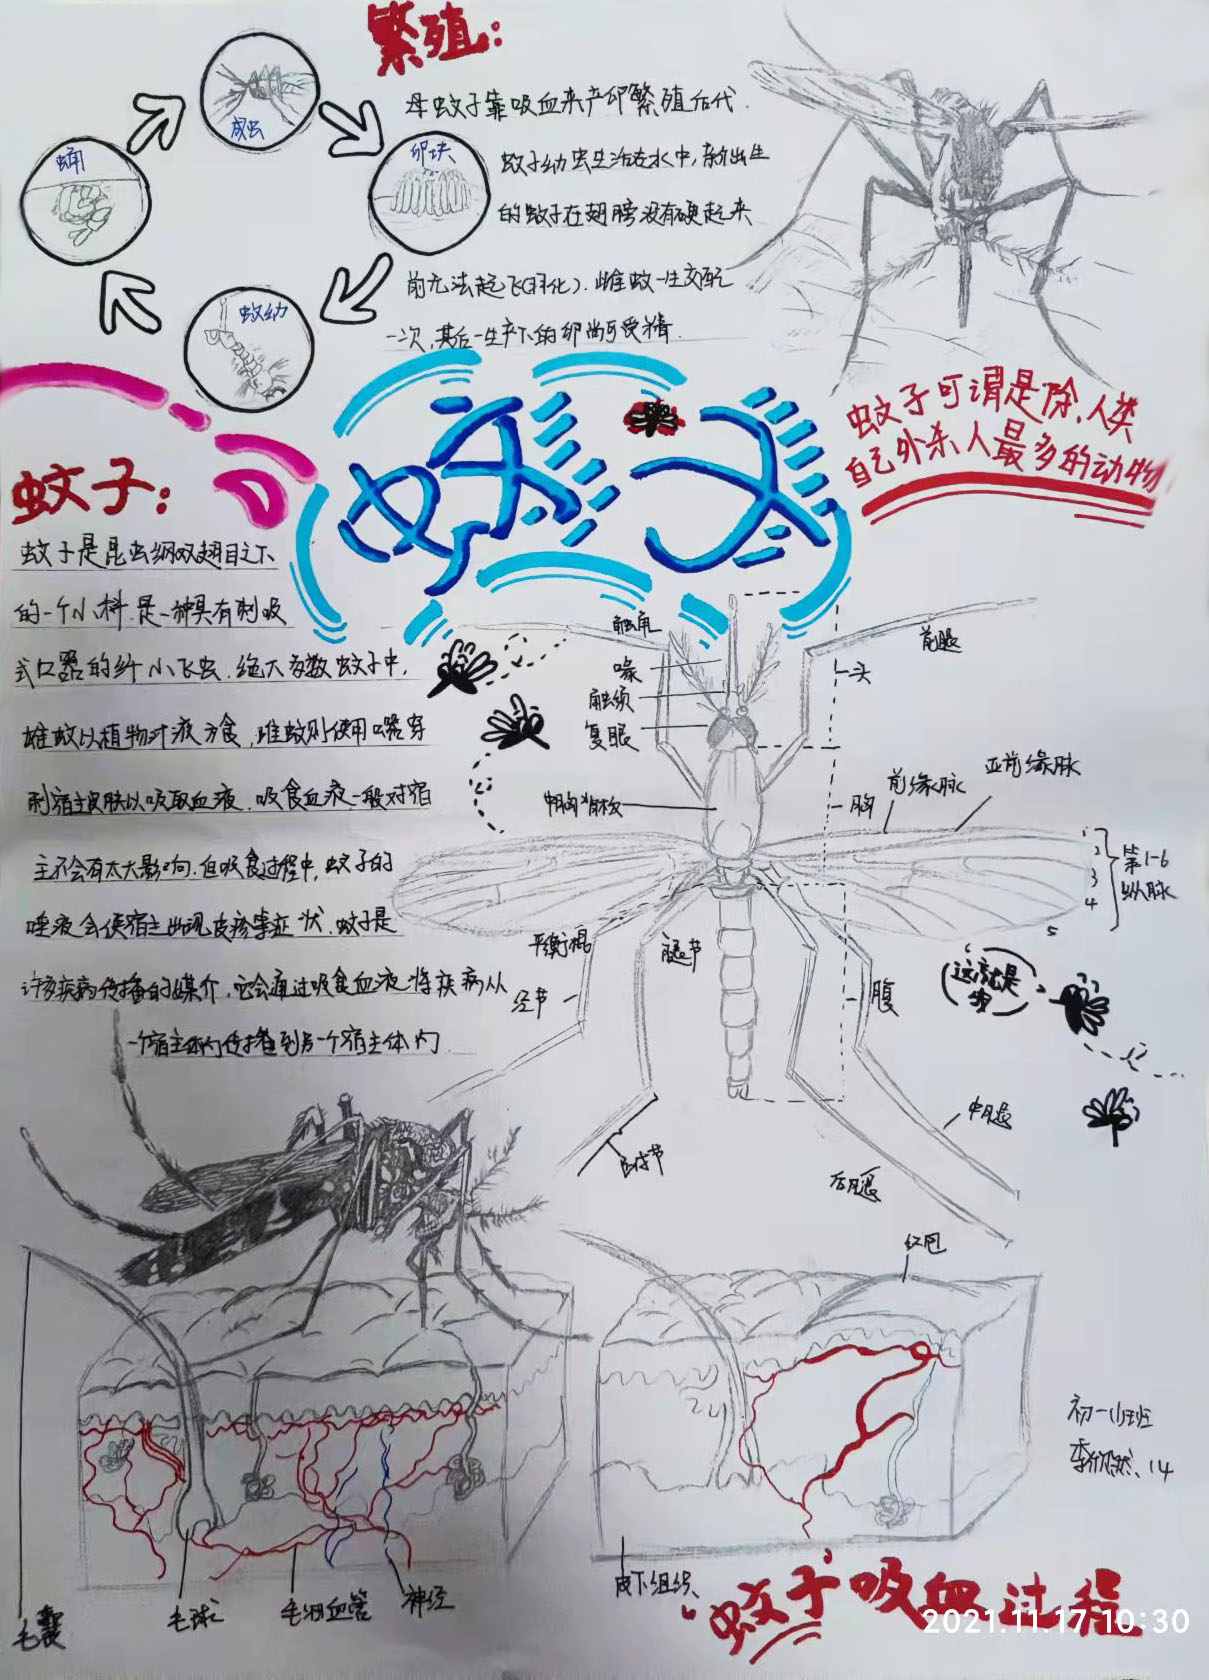 繁殖：
母蚊子靠吸血来产卵繁殖后代.
蚊子幼虫生活在水中,新出生
的蚊子在翅膀没有硬起来
前无法起飞(羽化).雌蚊一生交配
一次,其后一生产下的卵尚可受精.
成虫
卵块
蚊幼
蛹
蚊子可谓是除人类
自己外杀人最多的动物
蚊子：
蚊子是昆虫纲双翅目之下
的一个小科.是一种具有刺吸
式口器的纤小飞虫.绝大多数蚊子中,
雄蚊以植物汁液为食,雌蚊则使用口器穿
刺宿主皮肤以吸取血液.吸食血液一般对宿
主不会有太大影响.但吸食过程中,蚊子的
唾液会使宿主出现皮疹等症状.蚊子是
许多疾病传播的媒介.它会通过吸食血液将疾病从
一个宿主体内传播到另一个宿主体内.
触角
喙
触须
复眼
中胸背板
前腿
头
胸
前缘脉
亚前缘脉
1
2
3
4
5
第1-6
纵脉
平衡棍
腿节
胫节
腹
这就是
中腿
跗节
后腿
红包
毛囊
毛球
毛细血管
神经
皮下组织
蚊子吸血过程
2021.11.17 10:30